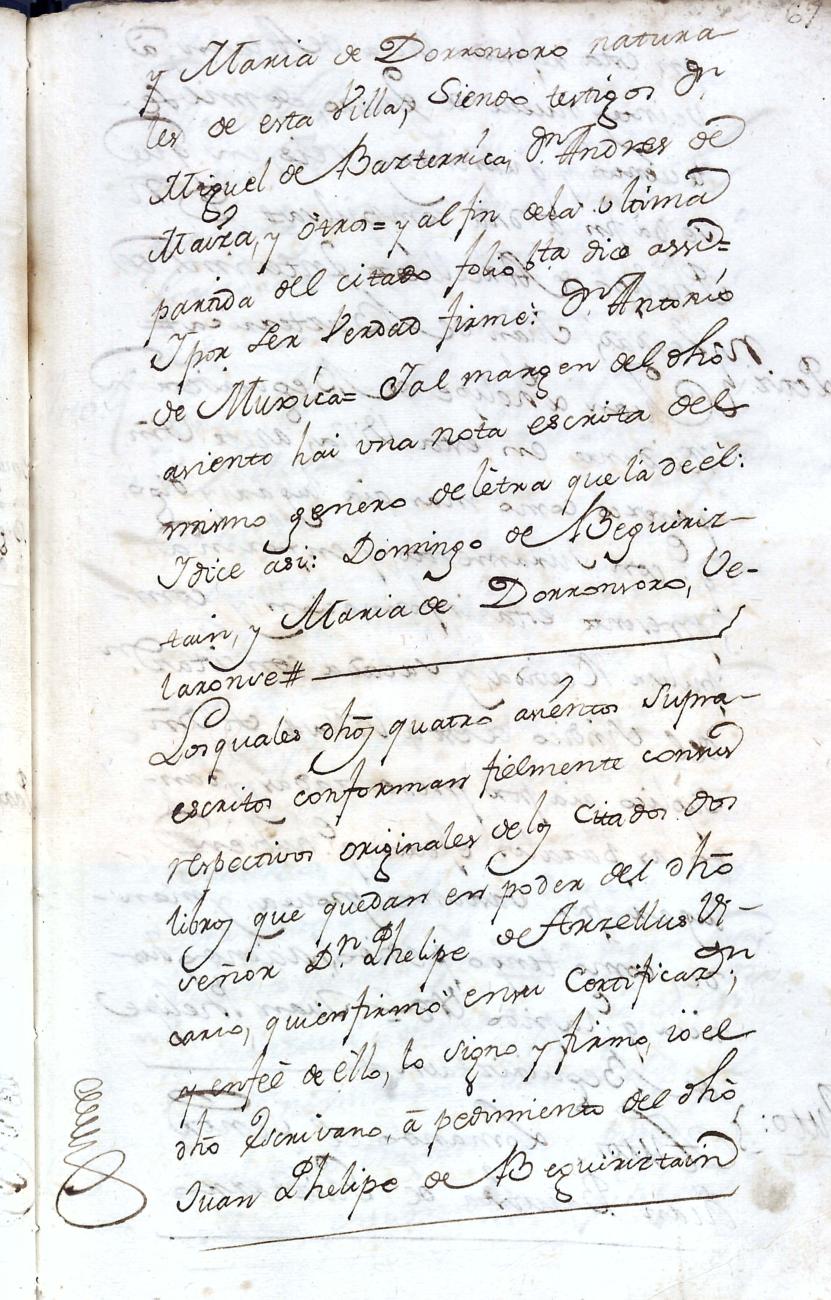 67
y Maria de Dorronsoro natura-
les de esta Villa, Siendo testigos Dn
Miguel de Barterrica, Dn. Andres de
Maiza, y otros = y al fin dela ultima
partida del citado folio bta dice assi =
I por ser Verdad firmè: Dn Antonio
de Muxica = I al margen del dho
asiento hai vna nota escrita del
mismo genero de letra que la de èl:
I dice asi: Domingo de Beguiriz-
tain, y Maria de Dorronsoro, Ve-
laronse #
Los quales dhos quatro asientos supra-
escritos conforman fielmente con sus
respectivos originales de los Citados dos
libros que quedan en poder del dho
señor Dn. Phelipe de Arzellus Vi-
cario, quien firmò en su Certificazn;
y en feè de ello, lo signo y firmo, io el
dho Escrivano, a pedimiento del dho
Juan Phelipe de Beguiriztain